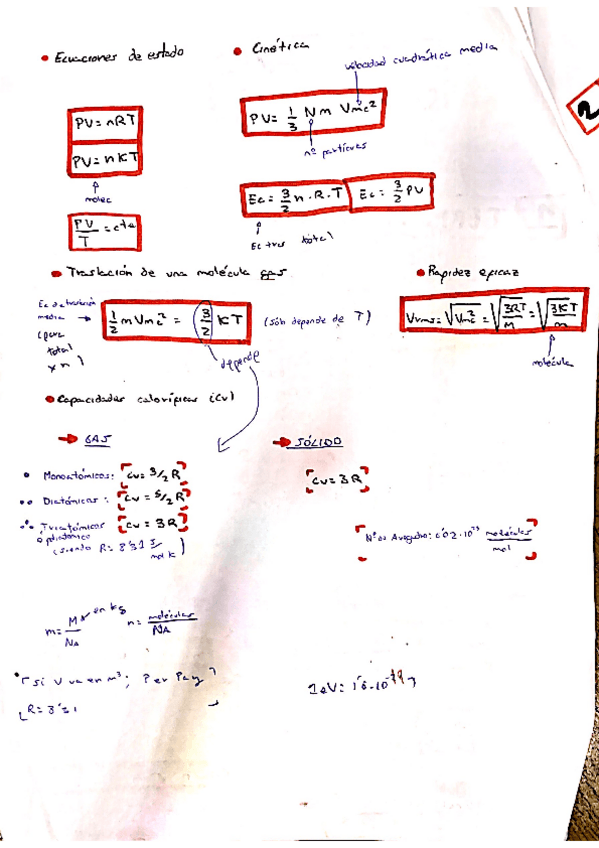 • Ecuaciones de estado
PV = nRT
PV = nKT
molec
PV/T = cte
• Cinética
velocidad cuadrática media
PV = 1/3 N m Vmc²
nº partículas
Ec = 3/2 n · R · T
Ec = 3/2 PV
Ec tras total
2
• Traslación de una molécula gas
Ec de traslación
media
(para
total
x n)
1/2 m Vmc² = 3/2 KT
(Sólo depende de T)
depende
• Rapidez eficaz
Vrms = √Vmc² = √3RT/M = √3KT/m
molécula
• Capacidades caloríficas (Cv)
→ GAS
• Monoatómicos: Cv = 3/2 R
•• Diatómicas: Cv = 5/2 R
Triatómicos Cv = 3R
o poliatómico
(siendo R = 8'31 J/mol K)
→ SÓLIDO
Cv = 3R
Nº de Avogadro: 6'02 · 10²³ moléculas/mol
m = M/NA
en kg
n = moléculas/NA
si V va en m³; P en Pa y
R = 8'31
1eV = 1'6 · 10⁻¹⁹ J